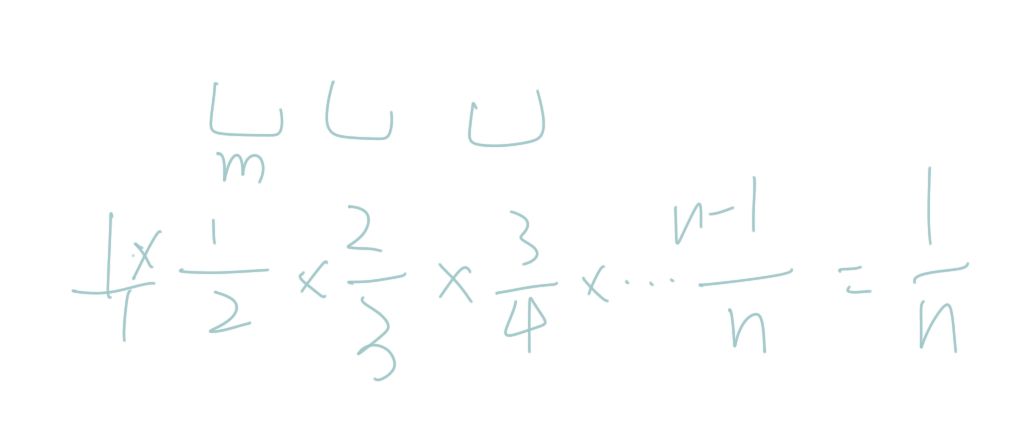 m
1/1 × 1/2 × 2/3 × 3/4 × ... n-1/n = 1/n